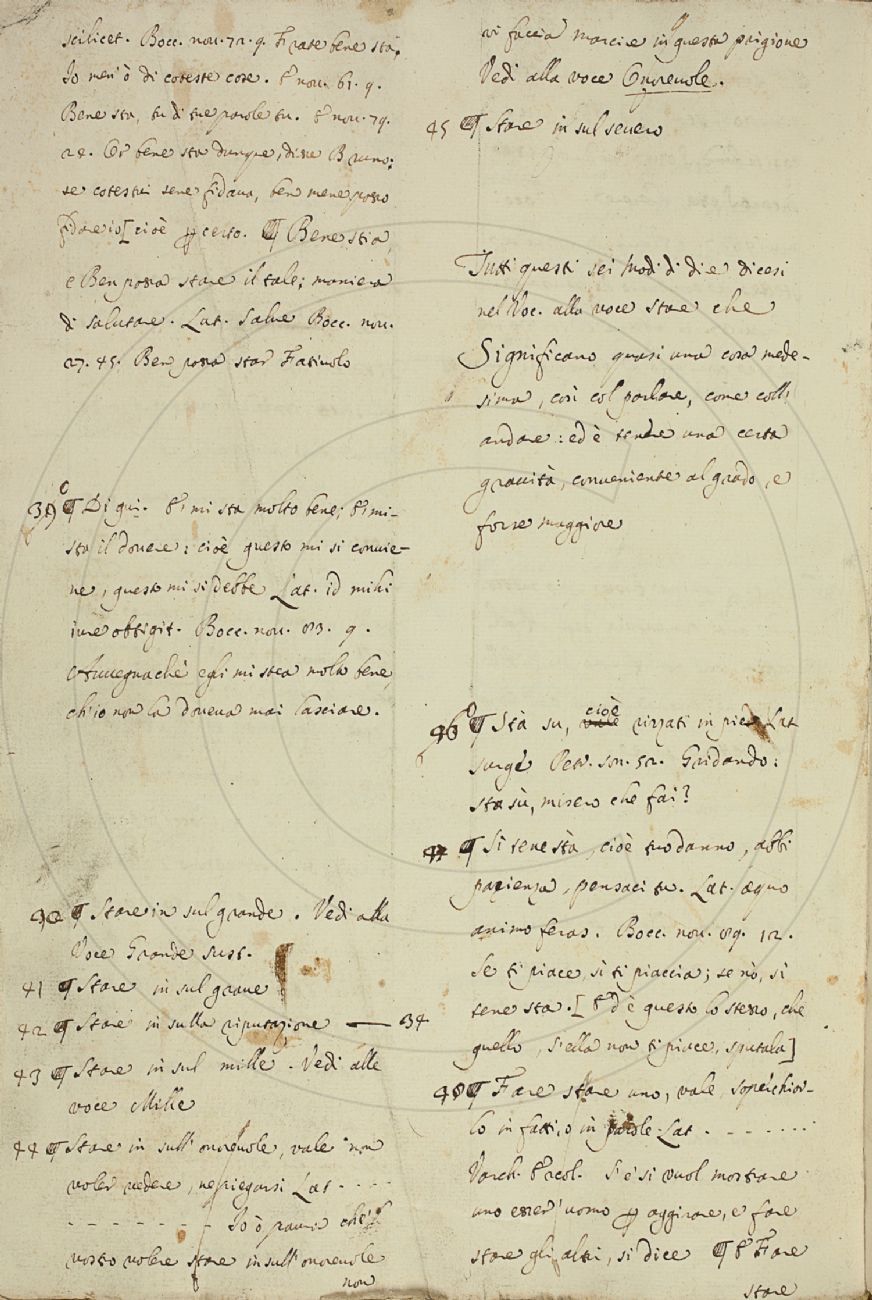 scilicet. Bocc. nov. 72. 9. Frate bene sta,
Io men'ò di coteste cose. E nov. 61. 9.
Bene sta, tu dì tue parole tu. E nov. 79.
22. Or bene sta dunque, disse Bruno;
se cotestui sene fidava, ben mene posso
fidare io [cioè certo. ¶ Bene stia,
e Ben possa stare il tale; maniera
di salutare. Lat. Salve Bocc. nov.
27. 45. Ben possa star Fatiuolo
39 ¶ Di qui. E' mi sta molto bene; E' mi
sta il dovere; cioè questo mi si convie-
ne, questo mi si debbe Lat. id mihi
iure obtigit. Bocc. nov. 83. 9.
Avvegnachè egli mi stea molto bene,
ch'io non la doveva mai lasciare.
40 ¶ Stare in sul grande. Vedi alla
Voce Grande sust.
41 ¶ Stare in sul grave
42 ¶ Stare in sulla riputazione — 34
43 ¶ Stare in sul mille. Vedi alle
voce Mille
44 ¶ Stare in sull'onorevole, vale non
voler cedere, ne piegarsi Lat - - - -
- - - - - - - - Io ò paura che'l
vostro volere stare in sull'onorevole
non
vi faccia marcire in questa prigione
Vedi alla voce Onorevole.
45 ¶ Stare in sul severo
Tutti questi sei modi di dire dicesi
nel Voc. alla voce stare che
Significano quasi una cosa mede-
sima, così col parlare, come coll'
andare: ed è tenere una certa
gravità, conveniente al grado, e
forse maggiore
46 ¶ Stà su, cioè rizzati in piè Lat
surge Petr. son. 52. Gridando:
sta sù, misero che fai?
47 ¶ Si sene stà, cioè tuo danno, abbi
pazienza, pensaci tu. Lat. æquo
animo feras. Bocc. nov. 89. 12.
Se ti piace, sì ti piaccia; se nò, sì
tene sta. [ Ed è questo lo stesso, che
quello, S'ella non ti piace, sputala]
48 ¶ Fare stare uno, vale, soperchiar-
lo in fatti, o in parole. Lat. - - - - - - -
Varch. Ercol. S'e' si vuol mostrare
uno esser' uomo aggirare, e fare
stare gli altri, si dice ¶ E' Fare
stare